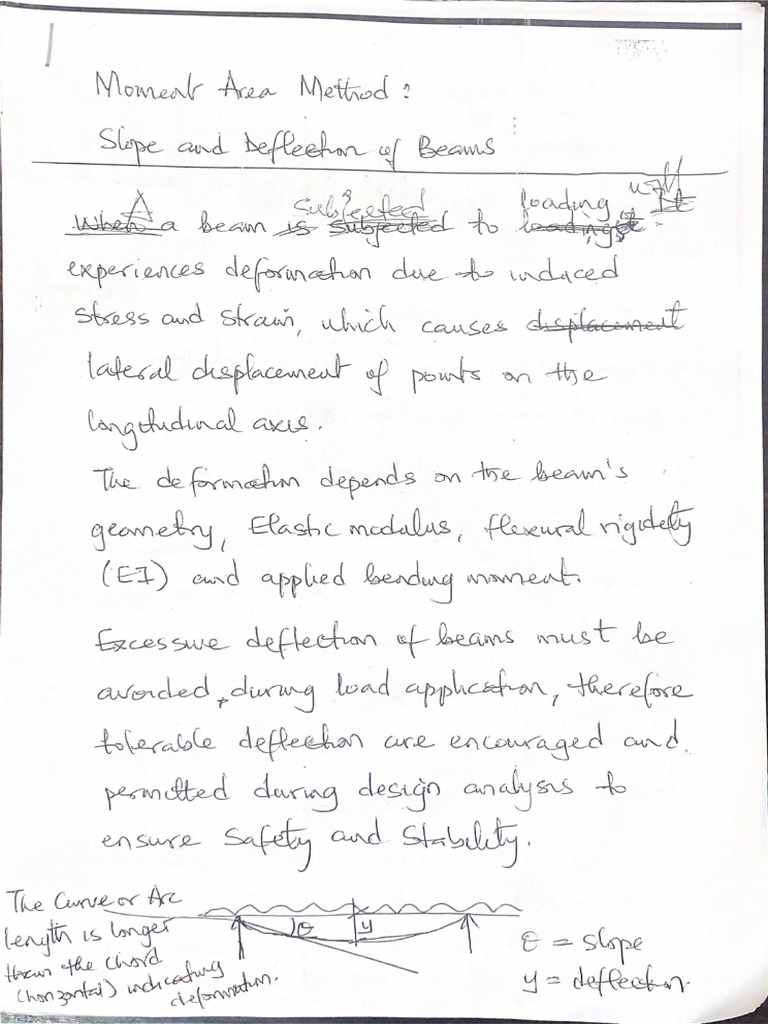 Moment Area Method:
Slope and Deflection of Beams
A a beam subjected to loading
experiences deformation due to induced
stress and strain, which causes displacement
lateral displacement of points on the
longitudinal axis.
The deformation depends on the beam's
geometry, Elastic modulus, flexural rigidity
(EI) and applied bending moment.
Excessive deflection of beams must be
avoided, during load application, therefore
tolerable deflection are encouraged and
permitted during design analysis to
ensure safety and stability.
The Curve or Arc
length is longer
than the chord
(horizontal) indicating
deformation.
θ
y
θ = slope
y = deflection.